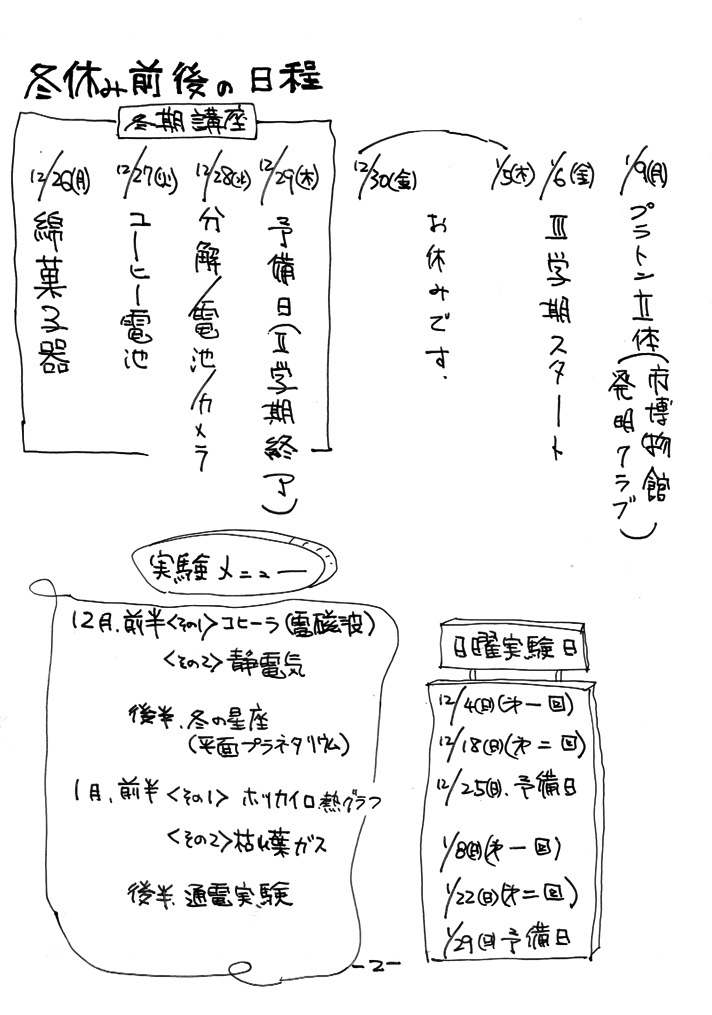 冬休み前後の日程
冬期講座
12/26(月)
綿菓子器
12/27(火)
コーヒー電池
12/28(水)
分解/電池/カメラ
12/29(木)
予備日(Ⅱ学期終了)
12/30(金)
1/5(木)
お休みです.
1/6(金)
Ⅲ学期スタート
1/9(月)
プラトン立体(市博物館
発明クラブ)
実験メニュー
12月.前半<その1>コヒーラ(電磁波)
<その2>静電気
後半.冬の星座
(平面プラネタリウム)
1月.前半<その1>ホッカイロ.熱グラフ
<その2>枯れ葉ガス
後半.通電実験
日曜実験日
12/4(日)(才一回)
12/18(日)(才二回)
12/25(日).予備日
1/8(日)(才一回)
1/22(日)(才二回)
1/29(日)予備日
-2-